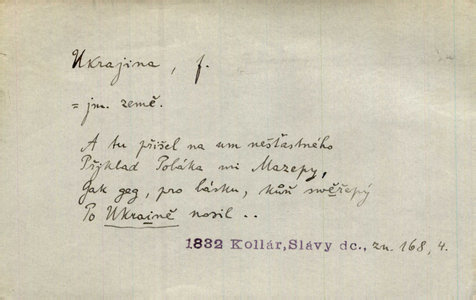 Ukrajina, f.
= jm. země.
A tu přišel na um nešťastného
Přjklad Poláka mi Mazepy,
Gak geg, pro lásku, kůň swěřepý
Po Ukraině nosil . .
1832 Kollár, Slávy dc., zn. 168, 4.